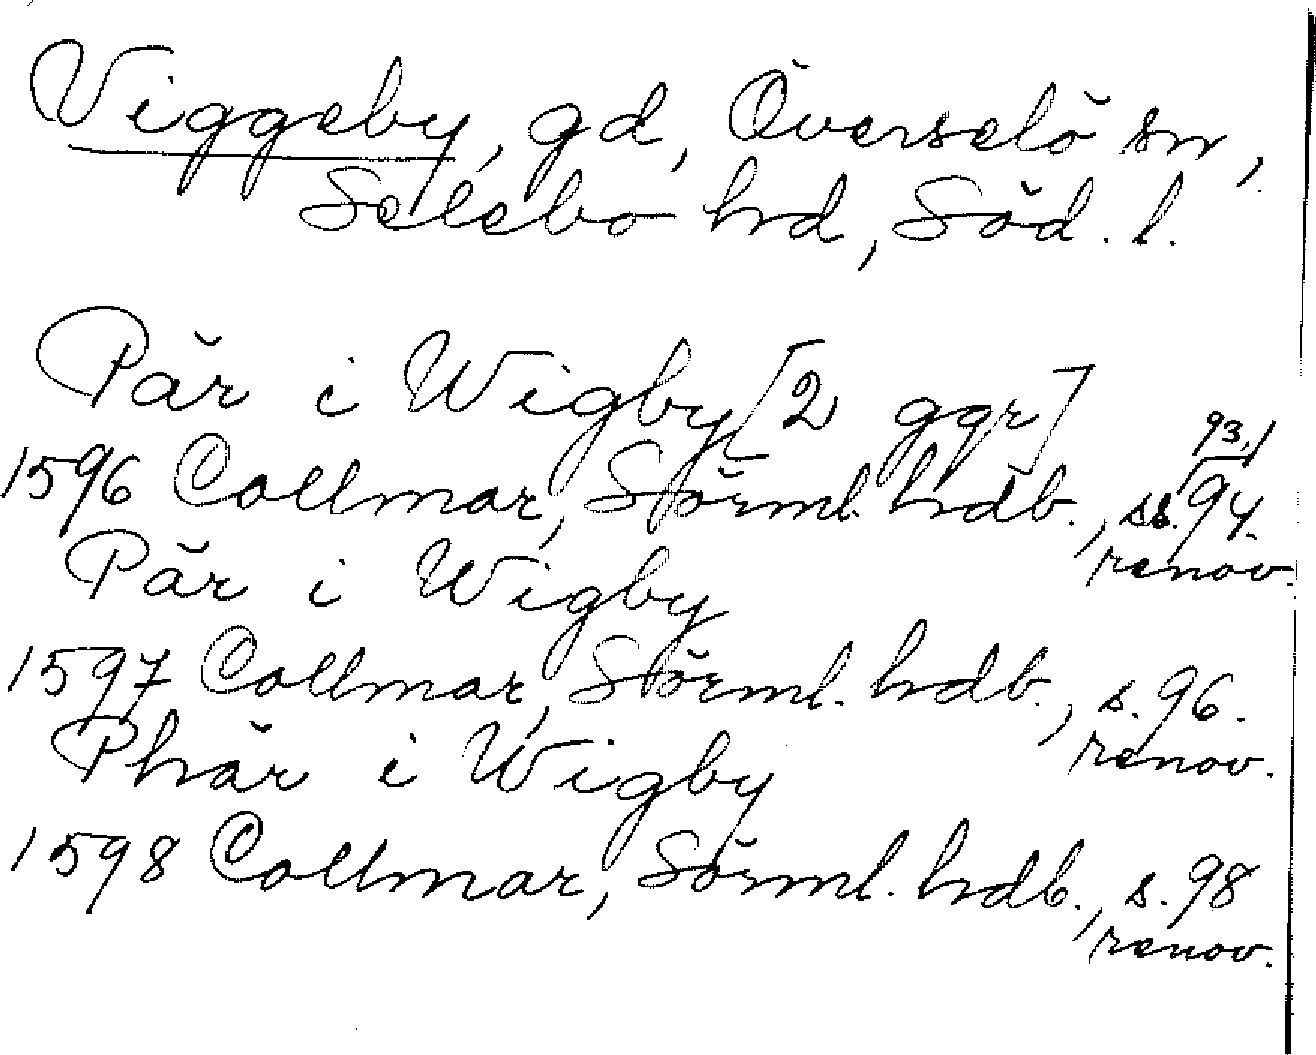 Viggeby, gd, Överselö sn,
Selebo hrd, Söd. l.
Pär i Wigby [2 ggr]
1596 Collmar, Sörml. hdb., ss. 93, 94.
renov.
Pär i Wigby
1597 Collmar, Sörml. hdb., s. 96.
renov.
Phär i Wigby
1598 Collmar, Sörml. hdb., s. 98
renov.